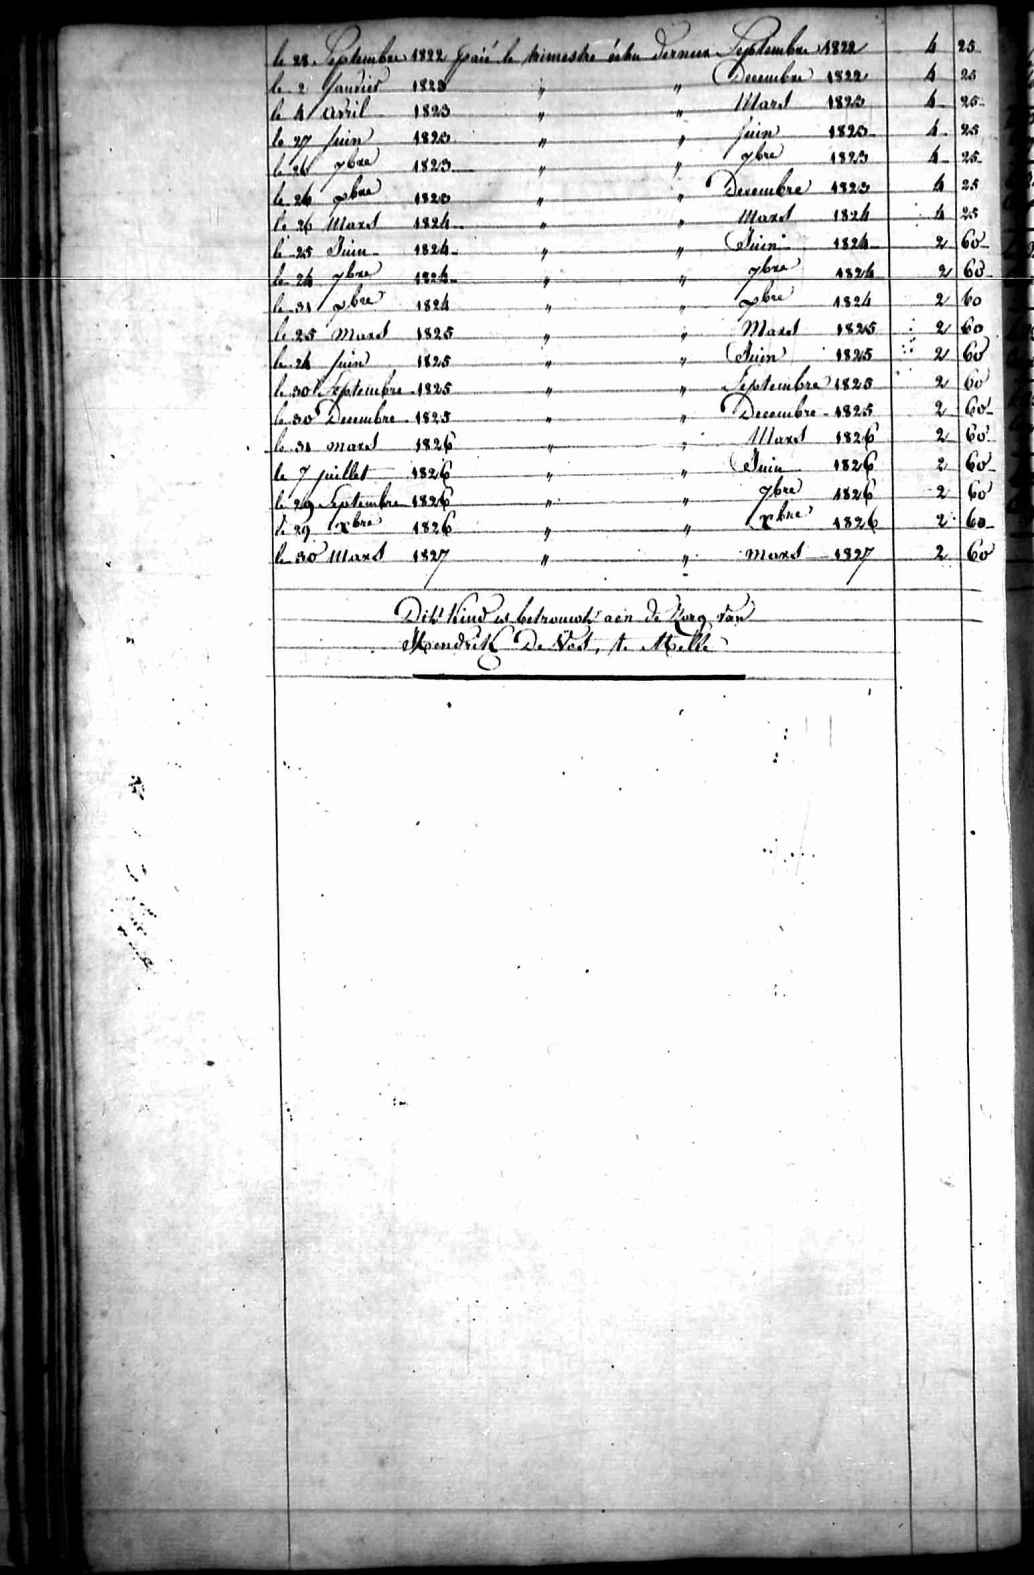 le 28 Septembre 1822 payé le trimestre échu dernier Septembre 1822 4 25
le 2 Janvier 1823 " " Decembre 1822 4 25
le 4 Avril 1823 " " Mars 1823 4 25
le 27 Juin 1823 " " Juin 1823 4 25
le 26 7bre 1823 " " 7bre 1823 4 25
le 24 xbre 1823 " " Decembre 1823 4 25
le 26 Mars 1824 " " Mars 1824 4 25
le 25 Juin 1824 " " Juin 1824 2 60
le 24 7bre 1824 " " 7bre 1824 2 60
le 31 xbre 1824 " " xbre 1824 2 60
le 25 Mars 1825 " " Mars 1825 2 60
le 24 Juin 1825 " " Juin 1825 2 60
le 30 Septembre 1825 " " Septembre 1825 2 60
le 30 Decembre 1825 " " Decembre 1825 2 60
le 31 mars 1826 " " Mars 1826 2 60
le 7 juillet 1826 " " Juin 1826 2 60
le 29 Septembre 1826 " " 7bre 1826 2 60
le 29 xbre 1826 " " xbre 1826 2 60
le 30 Mars 1827 " " mars 1827 2 60
Dit Kind is betrouwt aen de Zorg van
Hendrik De Vos, te Melle